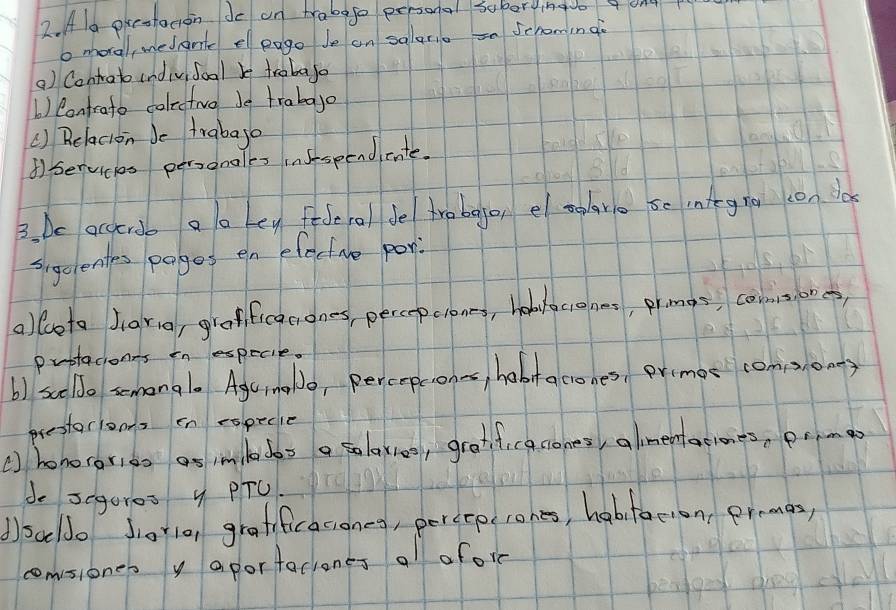 2. A la prestación de un trabajo personal subordinado a una
o moral, mediante el pago de un salario se denomina:
a) Contrato individual de trabajo
b) Contrato colectivo de trabajo
c) Relación de trabajo
d) Servicios personales independiente.
3. De acuerdo a la Ley federal del trabajo, el salario se integra con los
siguientes pagos en efectivo por:
a) Cuota diaria, gratificaciones, percepciones, habitaciones, primas, comisiones,
prestaciones en especie.
b) sueldo semanal. Aguinaldo, percepciones, habitaciones, primas comisiones
prestaciones en especie
c) honorarios asimilados a salarios, gratificaciones, alimentaciones, primas
de seguros y PTU.
d) Sueldo diario, gratificaciones, percepciones, habitacion, primas,
comisiones y aportaciones al afore